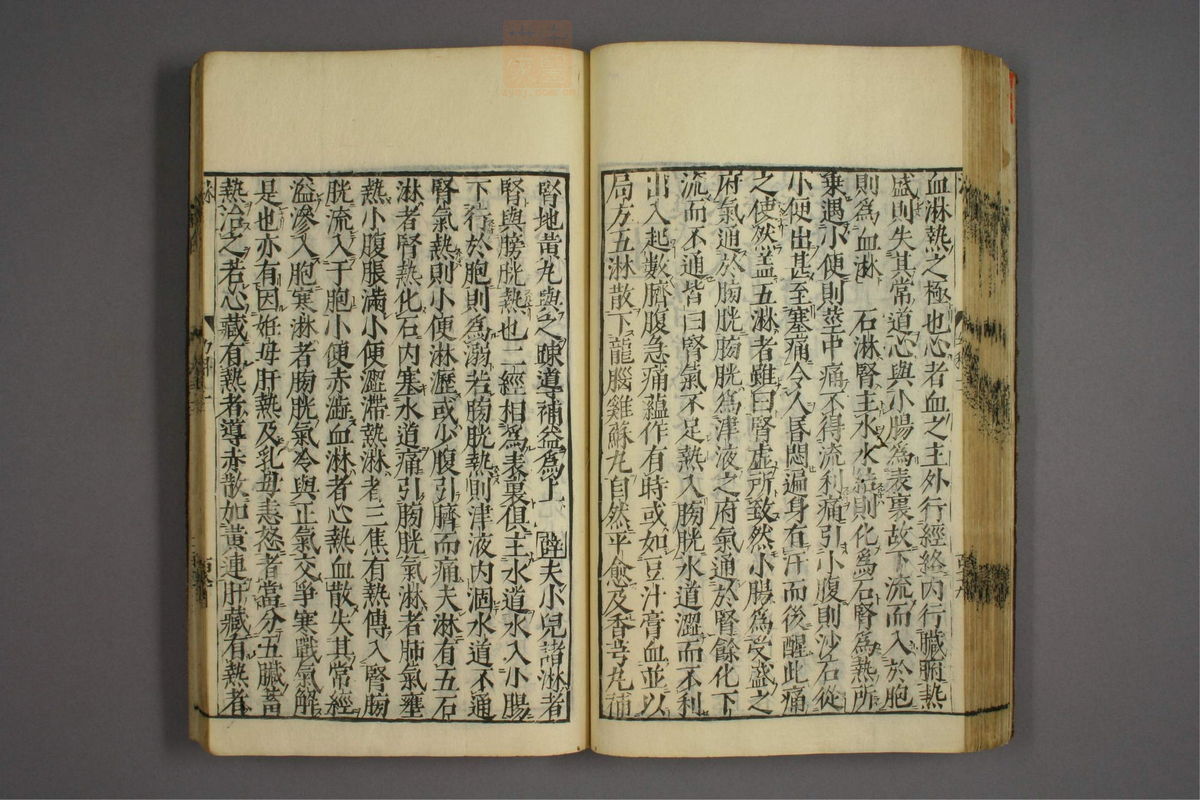 血淋熱之極也心者血之主外行經絡內行臟腑熱
盛則失其常道心與小腸為表裏故下流而入於胞
則為血淋 石淋腎主水水結則化為石腎為熱所
乗遇小便則莖中痛不得流利痛引小腹則沙石從
小便出甚至塞痛令人昏悶遍身有汗而後醒此痛
之使然蓋五淋者雖曰腎虛所致然小腸為受盛之
府氣通於膀胱膀胱為津液之府氣通於腎餘化下
流而不通皆曰腎氣不足熱入膀胱水道澀而不利
出入起數臍腹急痛蘊作有時或如豆汁膏血並以
局方五淋散下龍腦雞蘇丸自然平愈及香芎丸補
腎地黃丸與之踈導補益為上 薛 夫小兒諸淋者
腎與膀胱熱也二經相為表裏俱主水道水入小腸
下行於胞則為溺若膀胱熱則津液內涸水道不通
腎氣熱則小便淋瀝或少腹引臍而痛夫淋有五石
淋者腎熱化石內塞水道痛引膀胱氣淋者肺氣壅
熱小腹脹滿小便澀滯熱淋者三焦有熱傳入腎膀
胱流入于胞小便赤澁血淋者心熱血散失其常經
溢滲入胞寒淋者膀胱氣冷與正氣交爭寒戰氣解
是也亦有因姙母肝熱及乳母恚怒者當分五臟蓄
熱治之若心藏有熱者導赤散加黃連肝藏有熱者